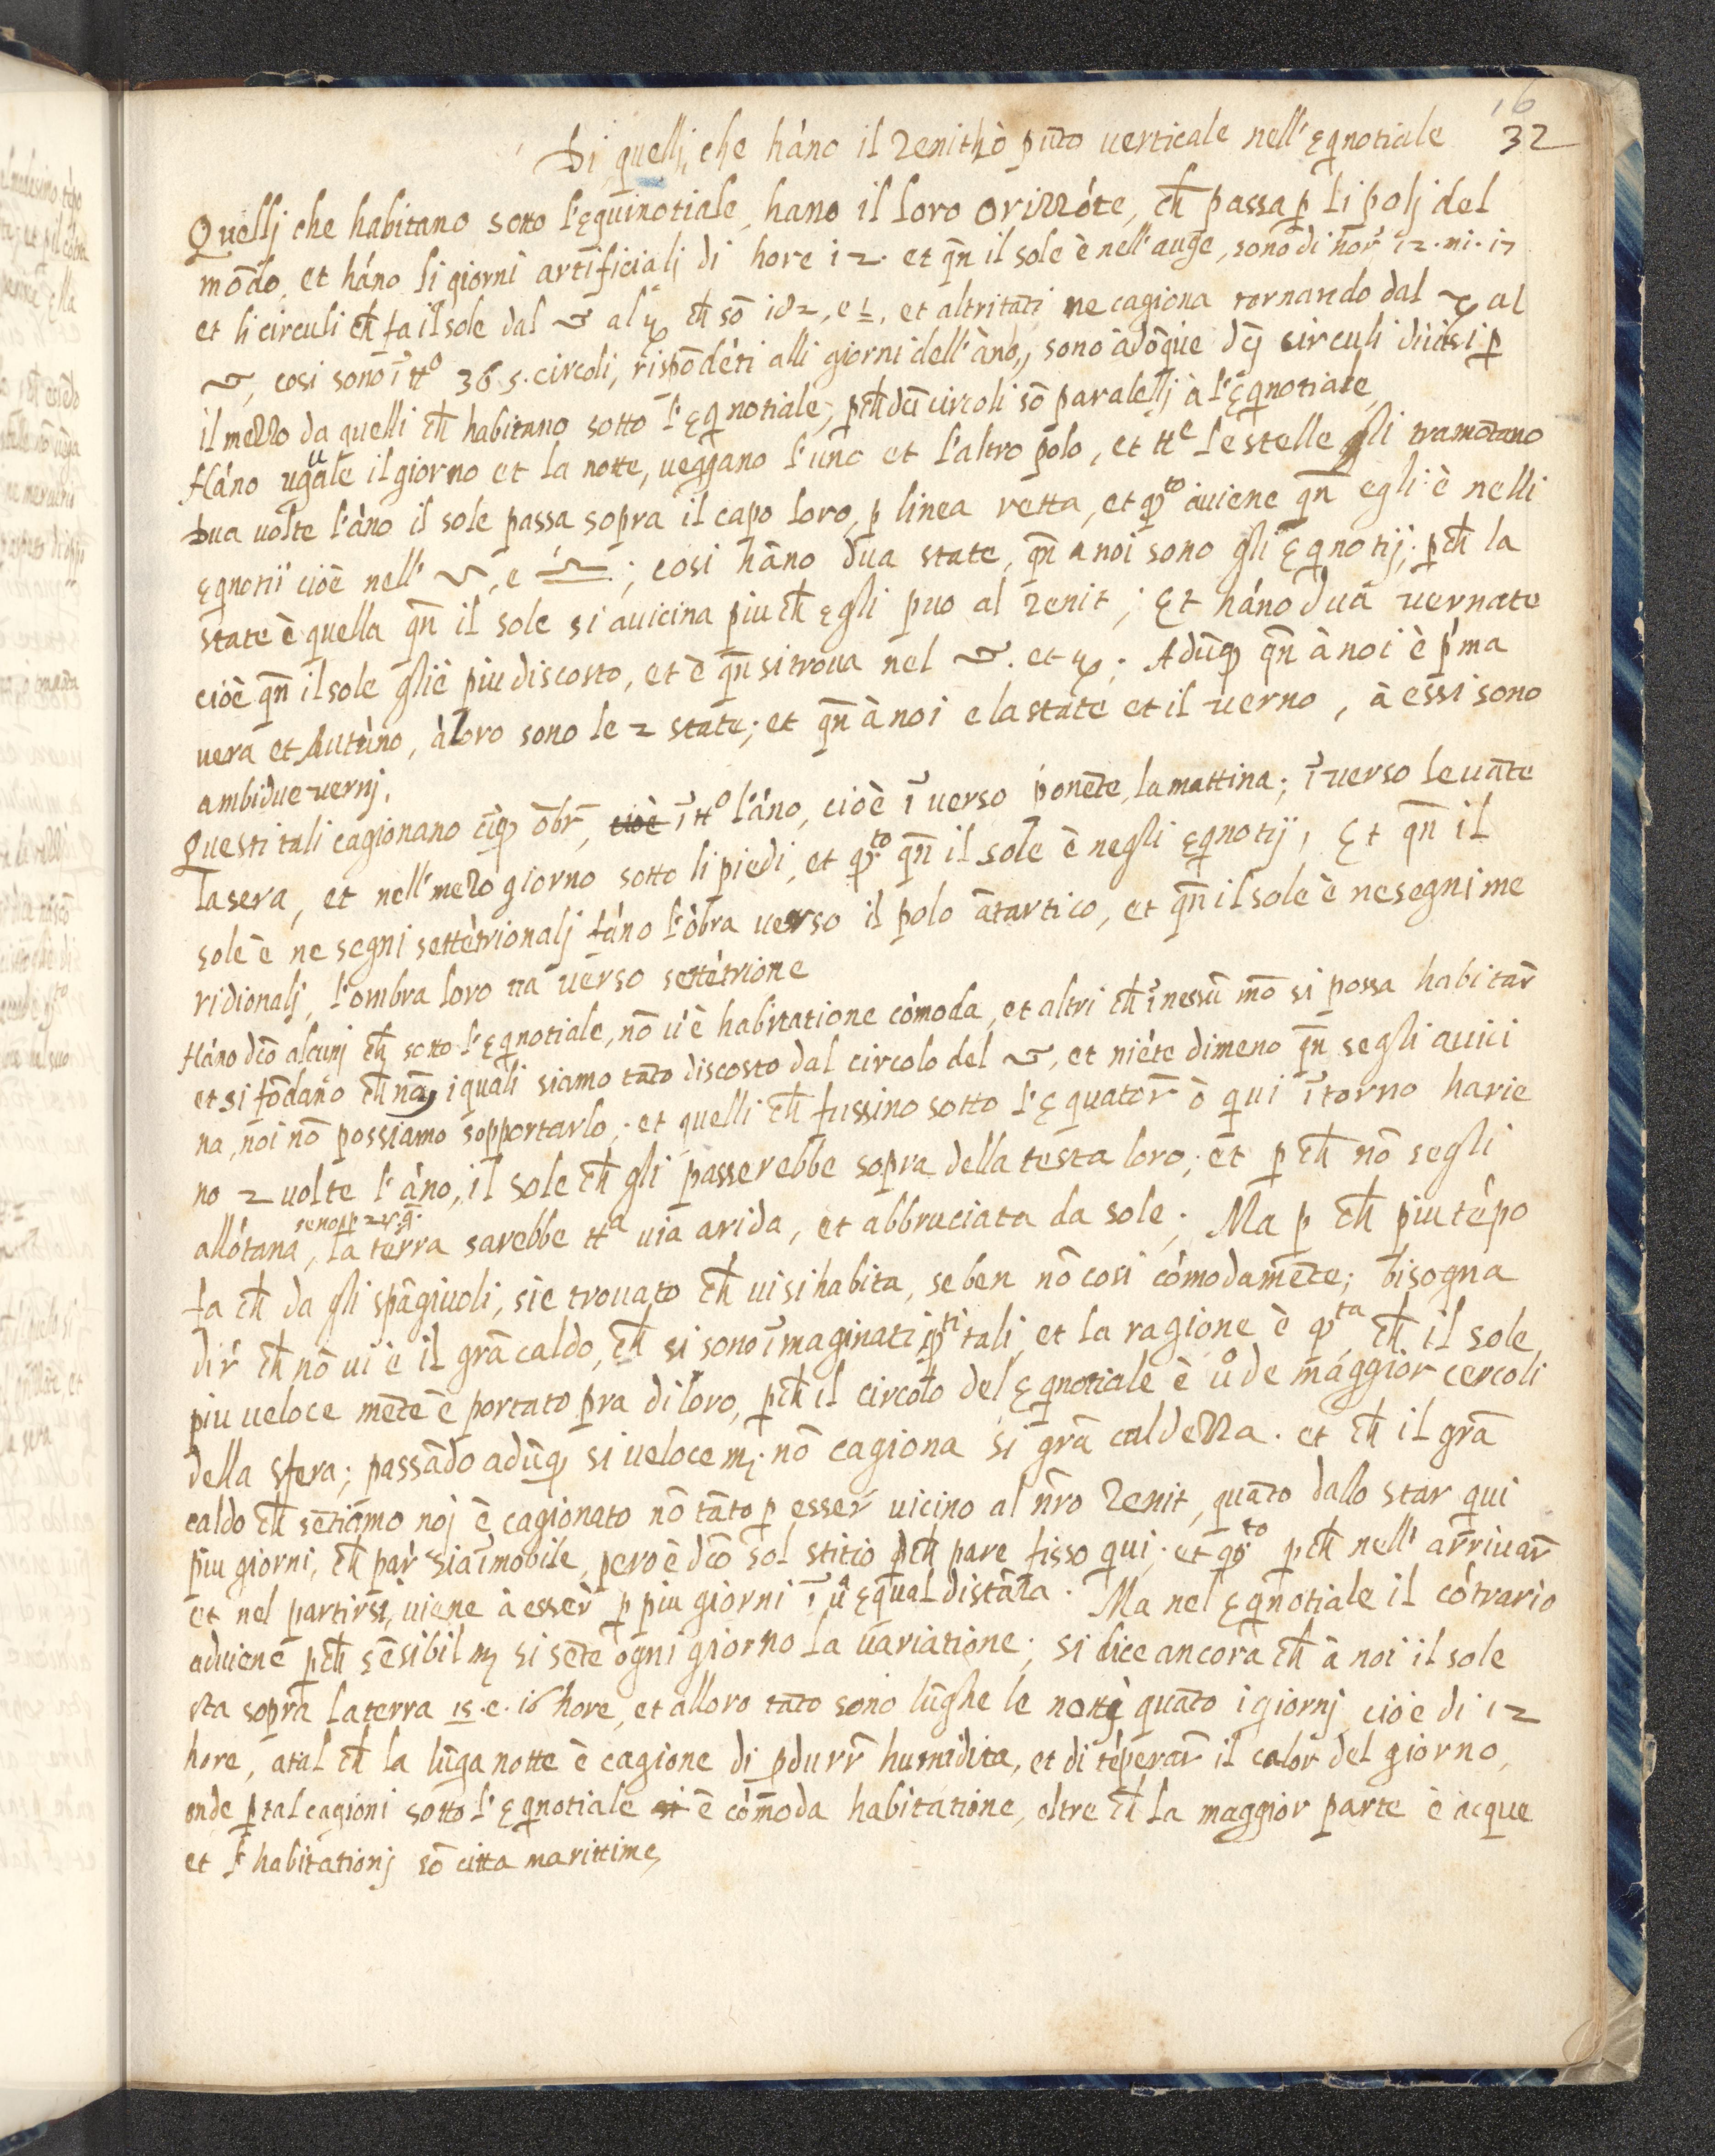 16
32
Di quelli, che háno il Zenith ò pũto uerticale nell' Eq̃notiale
Quellj che habitano sotto l'Equinotiale, hano il loro Orizzóte, ch̃ passa p̱ li polj del
mõdo, et háno li giorni artificialj di hore 12. et qñ il sole è nell' auge, sono di hor' 12. mi. 17
et li circuli ch̃ fa il sole dal ♋ al ♑ ch̃ sõ 182, e ½, et altri tãti ne cagiona tornando dal ♑ al
♋, cosi sono ĩ tt⁰ 365. circoli, rispõdéti alli giorni dell' áno, sono adõque dc̃j circuli diuisi p̱
il mezzo da quelli ch̃ habitano sotto l'Eq̃notiale, p̱ch̃ dc̃i circoli sõ paralellj à l'Eq̃notiale,
Háno uguale il giorno et la notte, ueggano l'uno et l'altro polo, et ttᵉ le stelle gli tramõtano
Dua uolte l'áno il sole passa sopra il capo loro, p̱ linea retta, et q̃ᵗᵒ auiene qñ egli è nelli
Eq̃notii cioè nell' ♈, e ♎; cosi hãno dua state, qñ a noi sono gli Eq̃notij; p̱ch̃ la
state è quella qñ il sole si auicina piu ch̃ Egli puo al Zenit; Et háno dua uernate
cioè qñ il sole gliè piu discosto, et è qñ si troua nel ♋. et ♑. Adũq̃ qñ à noi è p'ma
uera et Autúno, à loro sono le 2 state; et qñ à noi e la state et il uerno, à essi sono
ambidue uernj.
Questi tali cagionano cĩq̃ õbr̃, cioè ĩ tt⁰ l'áno, cioè ĩ uerso ponẽte, la mattina; ĩ uerso leuãte
la sera, et nell' mezo giorno sotto li piedi, et q̃ᵗᵒ qñ il sole è negli Eq̃notij, Et qñ il
sole è ne segni settétrionalj fáno l'óbra uerso il polo ãtartico, et qñ il sole è ne segni me
ridionalj, l'ombra loro ua uerso settétrione
Háno dc̃o alcunj ch̃ sotto l'Eq̃notiale, nõ u'è habitatione cómoda, et altri ch̃ ĩ nessũ mõ si possa habitar̃
et si fõdano ch̃ noj, i quali siamo tãto discosto dal circolo del ♋, et niéte dimeno qñ se gli auici
na, noi nõ possiamo sopportarlo; et quelli ch̃ fussino sotto l'Equator̃ ò qui ĩtorno harie
no 2 uolte l'áno, il sole ch̃ gli passerebbe sopra della testa loro; et p̱ch̃ nõ se gli
allótana, la terra sarebbe ttᵃ uia arida, et abbruciata da sole; Ma p̱ch̃ piu tépo
fa ch̃ da gli spãgiuoli, sie trouato ch̃ ui si habita, se ben nõ cosi cómodamẽte; bisogna
dir' ch̃ nõ ui è il grã caldo, ch̃ si sono ĩmaginati q̃ᵗⁱ tali, et la ragione è q̃ᵗᵃ ch̃ il sole
piu ueloce mẽte è portato p̱ra di loro, p̱ch̃ il circolo del Eq̃notiale è ũ⁰ de maggior cercoli
della sfera; passãdo adũq̃ si ueloce m̃. nõ cagiona si grã caldezza. et ch̃ il grã
caldo ch̃ sẽtiamo noj è cagionato nõ tãto p̱ esser' uicino al nr̃o Zenit, quãto dallo star qui
piu giorni, ch̃ par' sia ĩmobile, pero è dc̃o sol stitio p̱ch̃ pare fisso qui; et q̃ᵗᵒ p̱ch̃ nell' arriuar̃
et nel partirsi, uiene à esser' p̱ piu giorni ĩ ũᵃ Equal distãza. Ma nel Eq̃notiale il cótrario
aduiene p̱ch̃ sẽsibil m̃ si sẽte ogni giorno la uariatione; si dice ancora ch̃ à noi il sole
sta sopra la terra 15. e. 16 hore, et alloro tãto sono lũghe le nottj quãto i giornj cioè di 12
hore, atal ch̃ la lũga notte è cagione di p̱durr̃ humidita, et di téperar̃ il calor̃ del giorno,
onde p̱ tal cagioni sotto l'Eq̃notiale è cómoda habitatione, oltre ch̃ la maggior parte è acque
et l' habitationj sõ citta marittime,